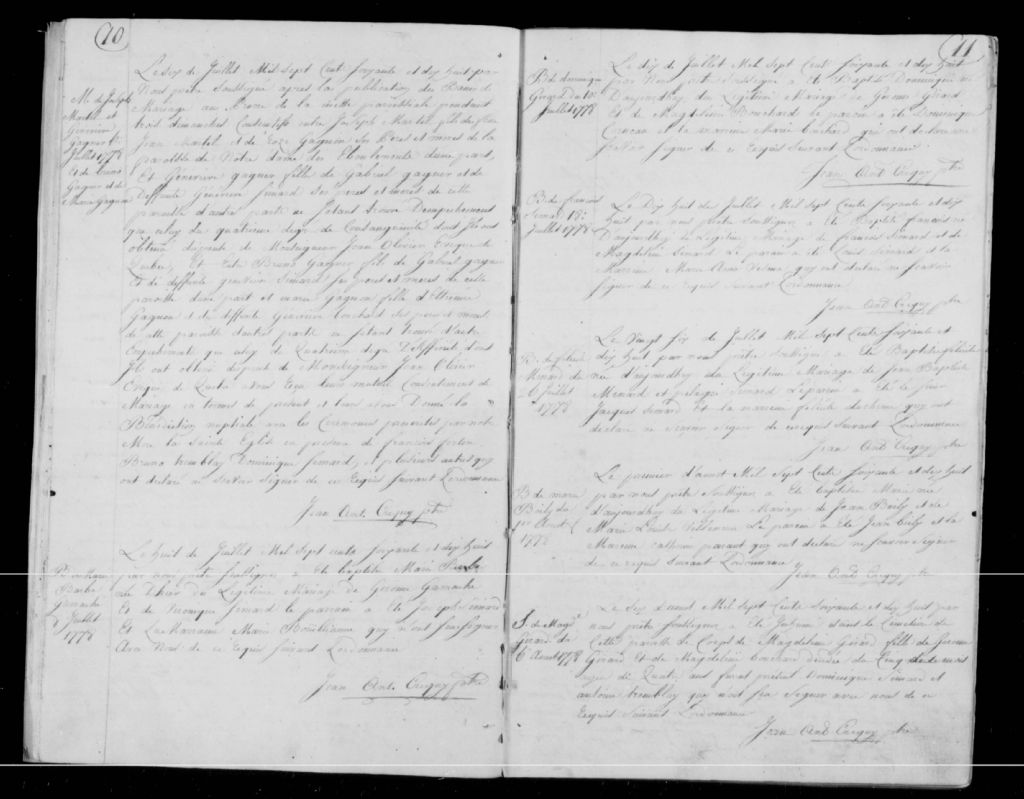 10
M. de Joseph
Martel et
Genevieve
gagner 6
Juillet 1778
Et de Bruno
Gagner et de
Marie Gagnon
Le Six de Juillet Mil Sept Cent soixante et dix huit par
Nous prêtre Soussigné après la publication des Bans de
Mariage au Prone de la ditte paroissiale pendant
trois dimanches Consecutifs entre Joseph Martel fils de feu
Jean Martel et de Roze Gagnon Ses Peres et meres de la
paroisse de Notre dame des Eboulements dune part,
Et Genevieve gagner fille de Gabriel gagner et de
Deffunte Genevieve Simard Ses peres et meres de cette
paroisse d'autre parte ne setant trouvé Dempechement
que celuy de quatrieme degré de Consanguinité dont ils ont
obtenu dispense de Monseigneur Jean Olivier Evêque de
Quebec, Et entre Bruno Gagner fils de Gabriel gagner
Et de deffunte genevieve Simard Ses peres et meres de cette
paroisse dune part et marie Gagnon fille d'Ettienne
Gagnon et de deffunte Genevieve bouchard Ses peres et meres
de cette paroisse d'autre parte ne setant trouvé d'autre
Empechement que celuy de Quatrieme degré D'affinité dont
Ils ont obtenu dispense de Monseigneur Jean Olivier
Evêque de Quebec avons reçu leur mutuelle Consentement de
Mariage en termes de present et leur avons Donné la
Bénédiction nuptiale avec les Ceremonies prescrites par notre
Mere la Sainte Eglise en presence de françois fortin
Bruno tremblay Dominique Simard, et plusieurs autres quy
ont declaré ne Scavoir Signer de ce Enquis Suivant Lordonnance
Jean Ant. Crequy ptre
B. de Marie
Barbe
gamache
8 Juillet
1778
Le huit de Juillet Mil Sept cents soixante et dix huit
par nous prêtre soussigné a Ete Baptisée Marie Barbe
du Legitime Mariage de Gerome Gamache
Et de Veronique Simard le parrain a Ete Joseph Simard
Et La Marraine Marie quy n'ont sceu signer
Avec Nous de ce Enquis suivant Lordonnance
Jean Ant. Crequy ptre
11
B. de dominique
Girard du 10e
Juillet 1778
Le dix de Juillet Mil Sept Cent soixante et dix huit
par Nous prêtre Soussigné a Ete Baptisé Dominique né
D'aujourdhuy du Legitime Mariage de Gerome Girard
Et de Magdeleine Bouchard le parrain a ete Dominique
et la marraine Marie bouchard quy ont declaré ne
scavoir Signer de ce Enquis Suivant Lordonnance
Jean Ant Crequy ptre
B. de francois
Simard 18e
Juillet 1778
Le Dix huit de Juillet Mil Sept Cent soixante et dix
huit par nous prêtre Soussigné a Ete Baptisé francois né
D'aujourdhuy du Legitime Mariage de francois Simard et de
Magdeleine Simard le parain a ete Louis Simard et la
Marraine Marie quy ont declaré ne scavoir
signer de ce Enquis Suivant Lordonnance
Jean Ant Crequy ptre
B. de felicité
Menard du
26 Juillet
1778
Le Vingt six de Juillet Mil Sept Cent soixante et
dix huit par nous prêtre soussigné a Ete Baptisée felicité
née d'aujourdhuy du Legitime Mariage de Jean Baptiste
Menard et pelagie Simard Leparein a Ete le sieur
Jacques Simard Et la marreine felicité duchesne quy ont
declaré ne Scavoir Signer de ce enquis Suivant Lordonnance
Jean Ant Crequy ptre
B de marie
Boily du
1er Aout
1778
Le premier d'aoust Mil Sept Cents soixante et dix huit
par nous prêtre Soussigné a Ete baptisée Marie née
d'aujourdhuy du Legitime Mariage de Jean Boily et de
Marie Louise Villeneuve Le parein a Ete Jean Boily et la
Mareine catherine quy ont declaré ne scavoir Signer
de ce requis Suivant Lordonnance
Jean Ant Crequy ptre
S. de Magd.
Girard du
6 Aoust 1778
Le Six d'aoust Mil Sept Cents Soixante et dix huit par
nous prêtre soussigné, a Ete Inhumé dans le Cimetiere de
Cette paroisse le Corps de Magdeleine Girard fille de Gerome
Girard Et de Magdeleine bouchard
agée de Quatre ans furent présent Dominique Simard et
antoine tremblay quy n'ont sceu Signer avec nous de ce
Enquis Suivant Lordonnance
Jean Ant Crequy ptre